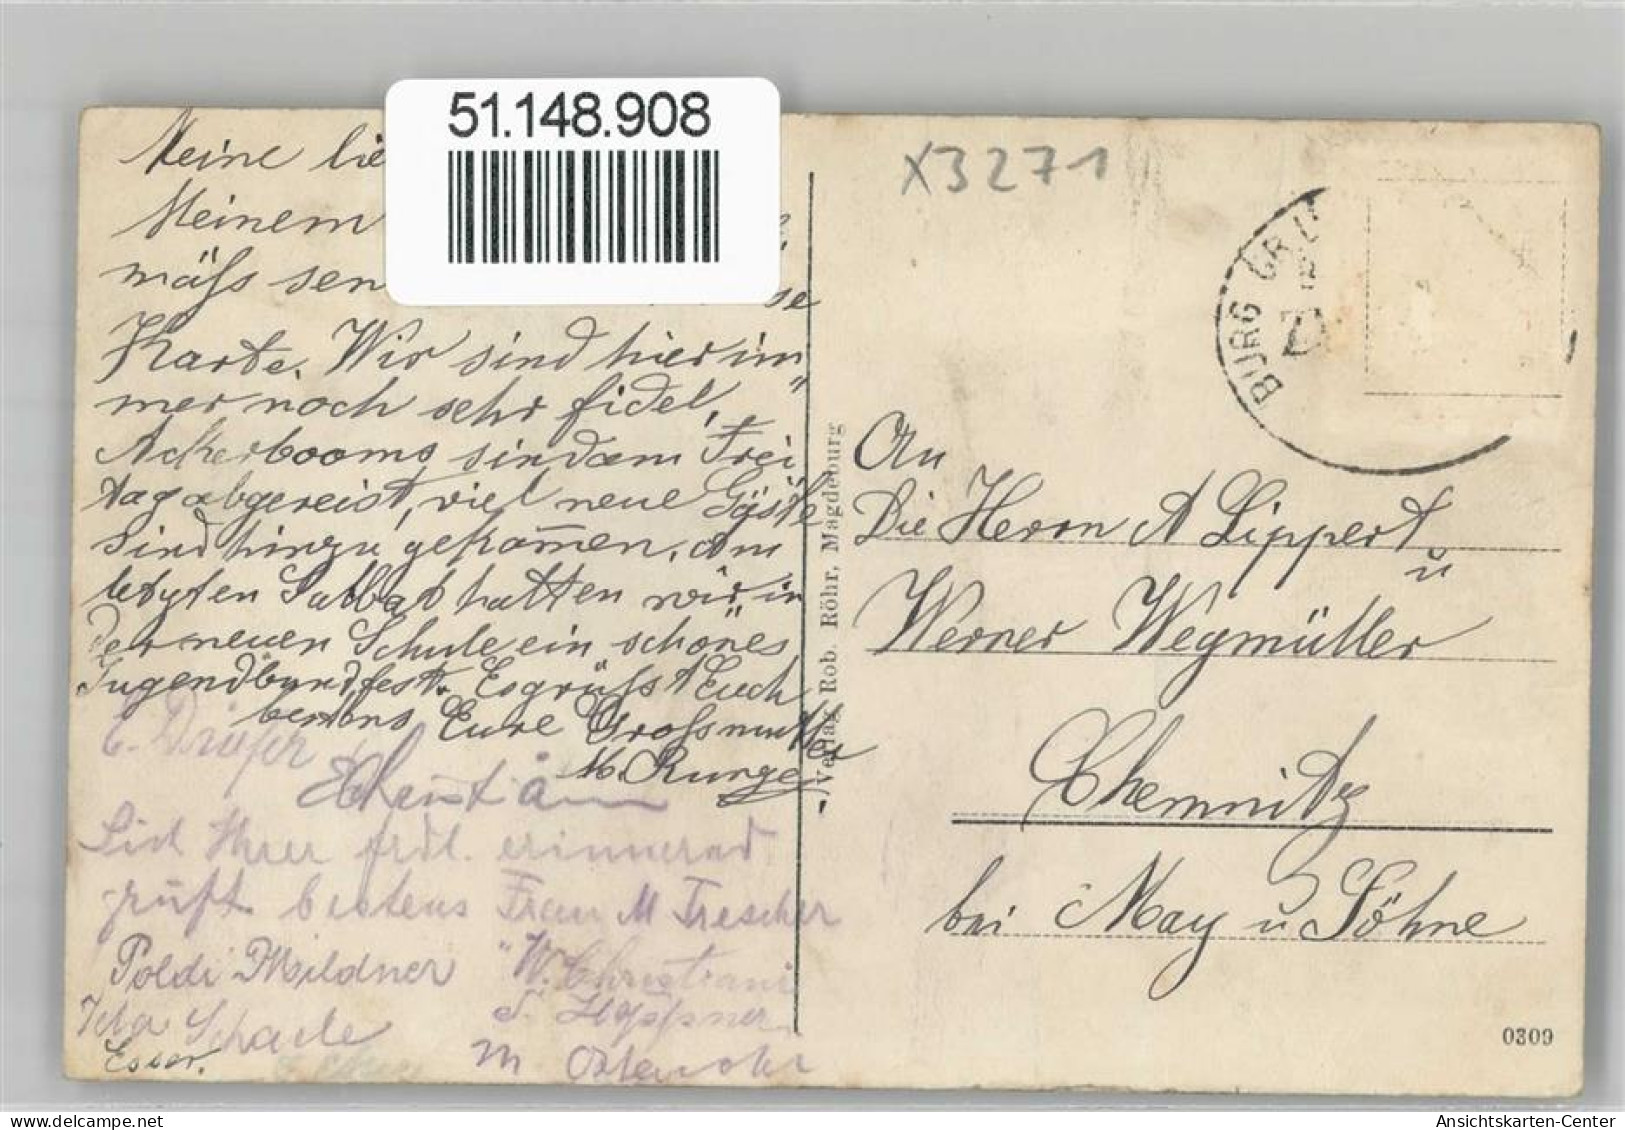 51.148.908
X3271
Meine lie
Meinem
mäss sen se
Karte. Wir sind hier im„
mer noch sehr fidel,
Ackerbooms sind am Frei„
tag abgereist, viel neue Gäste
sind hinzu gekom̄en. Am
letzten Sabbat hatten wir, in
der neuen Schule ein schönes
Jugendbundfest. Es grüsst Euch
bestens Eure Grossmutter
M. Runge
Sich Ihrer frdl. erinnernd
grüßt bestens Frau M Trescher
Poldi Mildner "W. Christiani
Ida Schaele
Esser.
BURG
An
Die Herrn A Lippert
u
Werner Wegmüller
Chemnitz
bei May u Söhne
Verlag Rob. Röhr, Magdeburg
0309
Ansichtskarten-Center